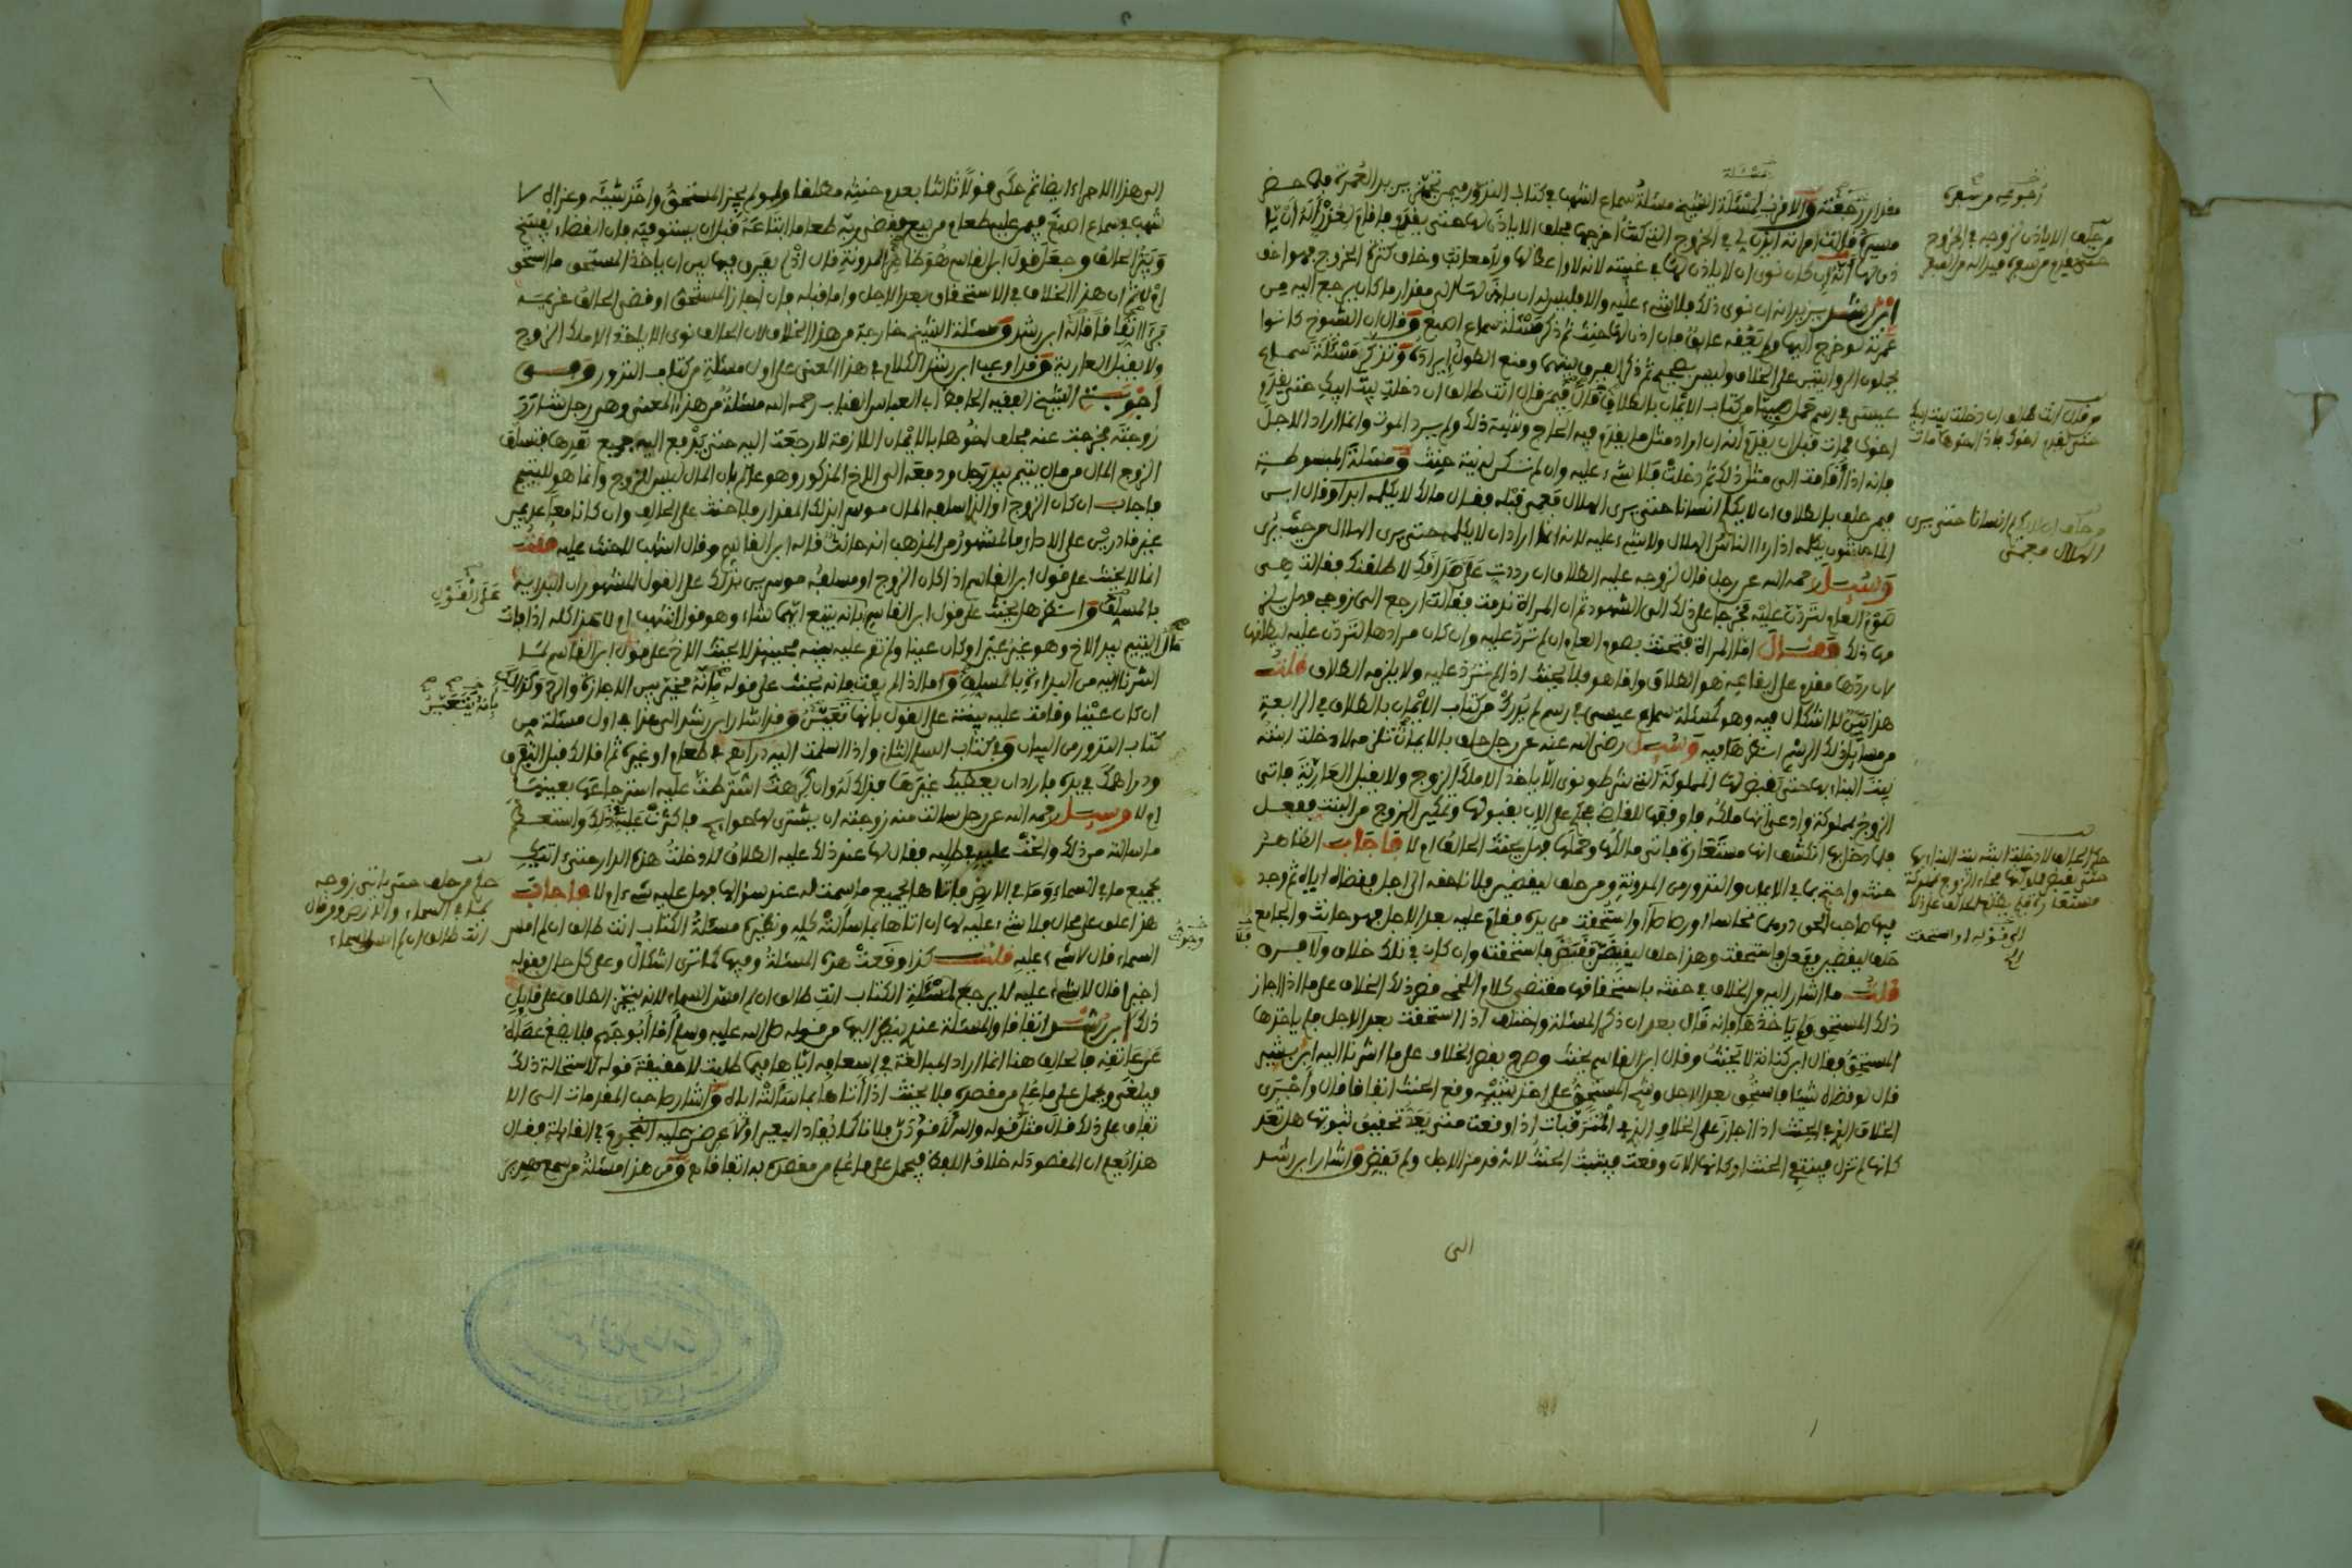 مسئلة
مقدار رجعته والاقرب لمسئلة الشيخ مسئلة سماع اشهب في كتاب النذور فيمن تجهز يريد العمرة فلما حضر
مسيره قالت امراته ايذن لي في الخروج التي كنت اخرجها فحلف الا ياذن لها حتى يقدم فاقام
ذن لها انه ان كان نوى ان لا ياذن لها في غيبته لانه لا واعظ لها ولا معاتب وخاف كثرة الخروج فهو اخف
ابن رشد يريد انه ان نوى ذلك فلا شيء عليه والا فليس له ان ياذن لها الى مقدار ما كان يرجع اليه من
عمرته لو خرج اليها ولم يعقه عايق فان اذن لها حنث ثم ذكر مسئلة سماع اصبغ وقال ان الشيوخ كانوا
يحملون الروايتين على الخلاف وليس بصحيح ثم ذكر الفرق بينهما ومنع الطول ايراده وتذكر مسئلة سماع
عيسى في رسم حمل صبيا من كتاب الايمان بالطلاق قال فيمن قال انت طالق ان دخلت بيت ابيك حتى يقدم
اخوك فمات قبل ان يقدم انه ان اراد مثل ما يقدم فيه الحاج ونايبة ذلك ولم يرد الموت وانما اراد الاجل
فانه اذا اقامت الى مثل ذلك ثم دخلت فلا شيء عليه وان لم تكن له نية حنث ومسئلة المبسوطة
فيمن حلف بالطلاق ان لا يكلم انسانا حتى يرى الهلال فعمي قبله فقال مالك لا يكلمه ابدا وقال ابن
الماجشون يكلمه اذا راى الناس الهلال ولا شيء عليه لانه انما اراد ان لا يكلمه حتى يرى الهلال من حيث يرى
وسئل رحمه الله عن رجل قال لزوجه عليه الطلاق ان رددت على هذا فك لا طلقتك فقالت هي
صوم العام لتردن عليه فخرجا على ذلك الى الشهود ثم ان المراة ندمت فقالت ارجع الى زوجي فهل يلزمـ
ـها ذلك فقال اما المراة فتحنث بصوم العام ان لم ترد عليه وان كان مرادها لتردن عليه ليطلقها
لان ردها مقدم على ايقاعه هو الطلاق واما هو فلا يحنث اذا لم ترد عليه ولا يلزمه الطلاق قلت
هذا بين لا اشكال فيه وهو كمسئلة سماع عيسى في رسم لم يدرك من كتاب الايمان بالطلاق في الرابعة
من مسايل ذلك الرسم انظرها فيه وسئل رضي الله عنه عن رجل حلف بالايمان تلزمه لا دخلت ابنته
بيت البناء بها حتى تقبض لها المملوكة التي شرط ونوى الا ياخذ الا ملك الزوج ولا يقبل العارية فاتى
الزوج بمملوكة وادعى انها ملكه فاوقفها للقاضي محلي على الاب بقبولها وتمكين الزوج من البنت ففعل
فلما دخل بها انكشف انها مستعارة فاتى مالكها وحملها فهل يحنث الحالف ام لا فاجاب الظاهر
حنثه واحتج بما في الايمان والنذور من المدونة ومن حلف ليقضين فلانا حقه الى اجل فقضاه اياه ثم وجد
فيها صاحب الحق درهما نحاسا او رصاصا او استحقت من يده فقام عليه بعد الاجل فهو حانث والجامع
حلف ليقضين ففعل فاستحقت وهذا حلف ليقبضن فقبض فاستحقت وان كان في ذلك خلاف ولا فرق
قلت ما اشار اليه من الخلاف في حنثه باستحقاقها مقتضى كلام اللخمي قصر ذلك الخلاف على ما اذا اجاز
ذلك المستحق ولم ياخذها فانه قال بعد ان ذكر المسئلة واختلف اذا استحقت بعد الاجل فلم ياخذها
المستحق فقال ابن كنانة لا يحنث وقال ابن القاسم يحنث وصرح بقصر الخلاف على ما اشرنا اليه ابن بشير
قال لو قضاه شيئا فاستحق بعد الاجل وشح المستحق على اخذ شيئه وقع الحنث اتفاقا قال واجرى
الخلاف الذي في الحنث اذا اجاز على الخلاف الذي في المترقبات اذا وقعت متى يعد تحقيق ثبوتها هل تعد
كانها لم تزل فينتفي الحنث او كانها الان وقعت فيثبت الحنث لانه قد مر الاجل ولم يقبض واشار ابن رشد
الى
رجوعه من سفره
من حلف الا ياذن لزوجه في الخروج
من قال انت طالق ان دخلت بيت ابيك
حتى يقدم اخوك فمات
من حلف ان لا يكلم انسانا حتى يرى
الهلال فعمي
حكم الحالف لا دخلت ابنته بيت البناء بها
حتى يقبض مملوكتها فجاء الزوج بمملوكة
الى قوله او استحقت
الى هذا الاجراء ايضا ثم حكى قولا ثالثا بعدم حنثه مطلقا ولو لم يجز المستحق واخذ شيئه وعزاه لا
شهب وسماع اصبغ فيمن عليه طعام من بيع فقضى ربه طعاما ابتاعه قبل ان يستوفيه فان القضاء يفسخ
ويبر الحالف وجعل قول ابن القاسم هو ظاهر المدونة قال اذ لم يفرق فيها بين ان ياخذ المستحق ما استحق
ام لا ثم ان هذا الخلاف في الاستحقاق بعد الاجل واما قبله فان اجاز المستحق او قضى الحالف غريمه
بر اتفاقا قاله ابن رشد ومسئلة الشيخ خارجة من هذا الخلاف لان الحالف نوى الا ياخذ الا ملك الزوج
ولا يقبل العارية وقد اوعب ابن رشد الكلام في هذا المعنى على اول مسئلة من كتاب النذور ومن
اجوبة الشيخ الفقيه الحافظ ابي العباس القباب رحمه الله مسئلة من هذا المعنى وهي رجل شارر
زوجته فخرجت عنه فحلف اخوها بالايمان اللازمة لا رجعت اليه حتى يدفع اليه جميع نقدها فتسلف
الزوج المال من مال يتيم بيد رجل ودفعه الى الاخ المذكور وهو عالم بان المال ليس للزوج وانما هو لليتيم
فاجاب ان كان الزوج او الذي اسلفه المال موسرا بذلك المقدار فلا حنث على الحالف وان كانا معا عديمين
غير قادرين على الاداء فالمشهور من المذهب انه حانث قاله ابن القاسم وقال اشهب لا حنث عليه قلت
انما لا يحنث على قول ابن القاسم اذا كان الزوج او مسلفه موسرين بذلك على القول المشهور ان البداية
بالمسلف وانظر هل يحنث على قول ابن القاسم بانه يتبع ايهما شاء وهو قول اشهب ام لا هذا كله اذا فات
مال اليتيم بيد الاخ وهو عين غير او كان عينا ولم تقم عليه بينة فحينئذ لا يحنث الاخ على قول ابن القاسم لما
اشرنا اليه من البداءة بالمسلف واما اذا لم يفت فانه يحنث على قوله بانه مخير بين الاجازة والرد وكذلك
ان كان عينا وقامت عليه بينة على القول بانها تتعين وقد اشار ابن رشد الى هذا في اول مسئلة من
كتاب النذور من البيان وفي كتاب السلم الثاني واذا اسلمت اليه دراهم في طعام او غيره ثم اقالك قبل التفرق
ودراهمك في يده فاراد ان يعطيك غيرها فذلك له وان كرهت اشترطت عليه استرجاعها بعينها
ام لا وسئل رحمه الله عن رجل سالت منه زوجته ان يشتري لها حوايج فاكثرت عليه في ذلك
ما سالته من ذلك والحت عليه في طلبه فقال لها عند ذلك عليه الطلاق لا دخلت هذه الدار حتى اتيك
بجميع ما في السماء وما في الارض فاتاها بجميع ما سمت له عند سؤالها فهل عليه شيء ام لا فاجاب
هذا علق على محال فلا شيء عليه لها ان اتاها بما سالته كله ونظيره مسئلة الكتاب انت طالق ان لم امس
السماء قال لا شيء عليه قلت كذا وقعت هذه المسئلة وفيها كما ترى اشكال وعلى كل حال فقوله
اخيرا قال لا شيء عليه لا يرجع لمسئلة الكتاب انت طالق ان لم امس السماء لانه ينجز الطلاق على قايل
ذلك ابن رشد اتفاقا والمسئلة عندي ينظر اليها من قوله صلى الله عليه وسلم اما ابو جهم فلا يضع عصاه
عن عاتقه فالحالف هنا انما اراد المبالغة في اسعافه اياها فيما طلبت لا حقيقة قوله لاستحالة ذلك
فيلغى ويحمل على ما علم من مقصده فلا يحنث اذا اتاها بما سالته اياه واشار صاحب المقدمات الى الا
تفاق على ذلك قال مثل قوله والله لاقودن فلانا كما يقاد البعير اولا عرض عليه النجوم في القايلة فقال
هذا يعلم ان المقصود له خلاف اللفظ فيحمل على ما علم من مقصده به اتفاقا ومن هذا مسئلة من سمع
على القول
بانه يتعين
حكم من حلف حتى ياتي زوجه
بما في السماء والارض ومن قال
انت طالق ان لم امس السماء